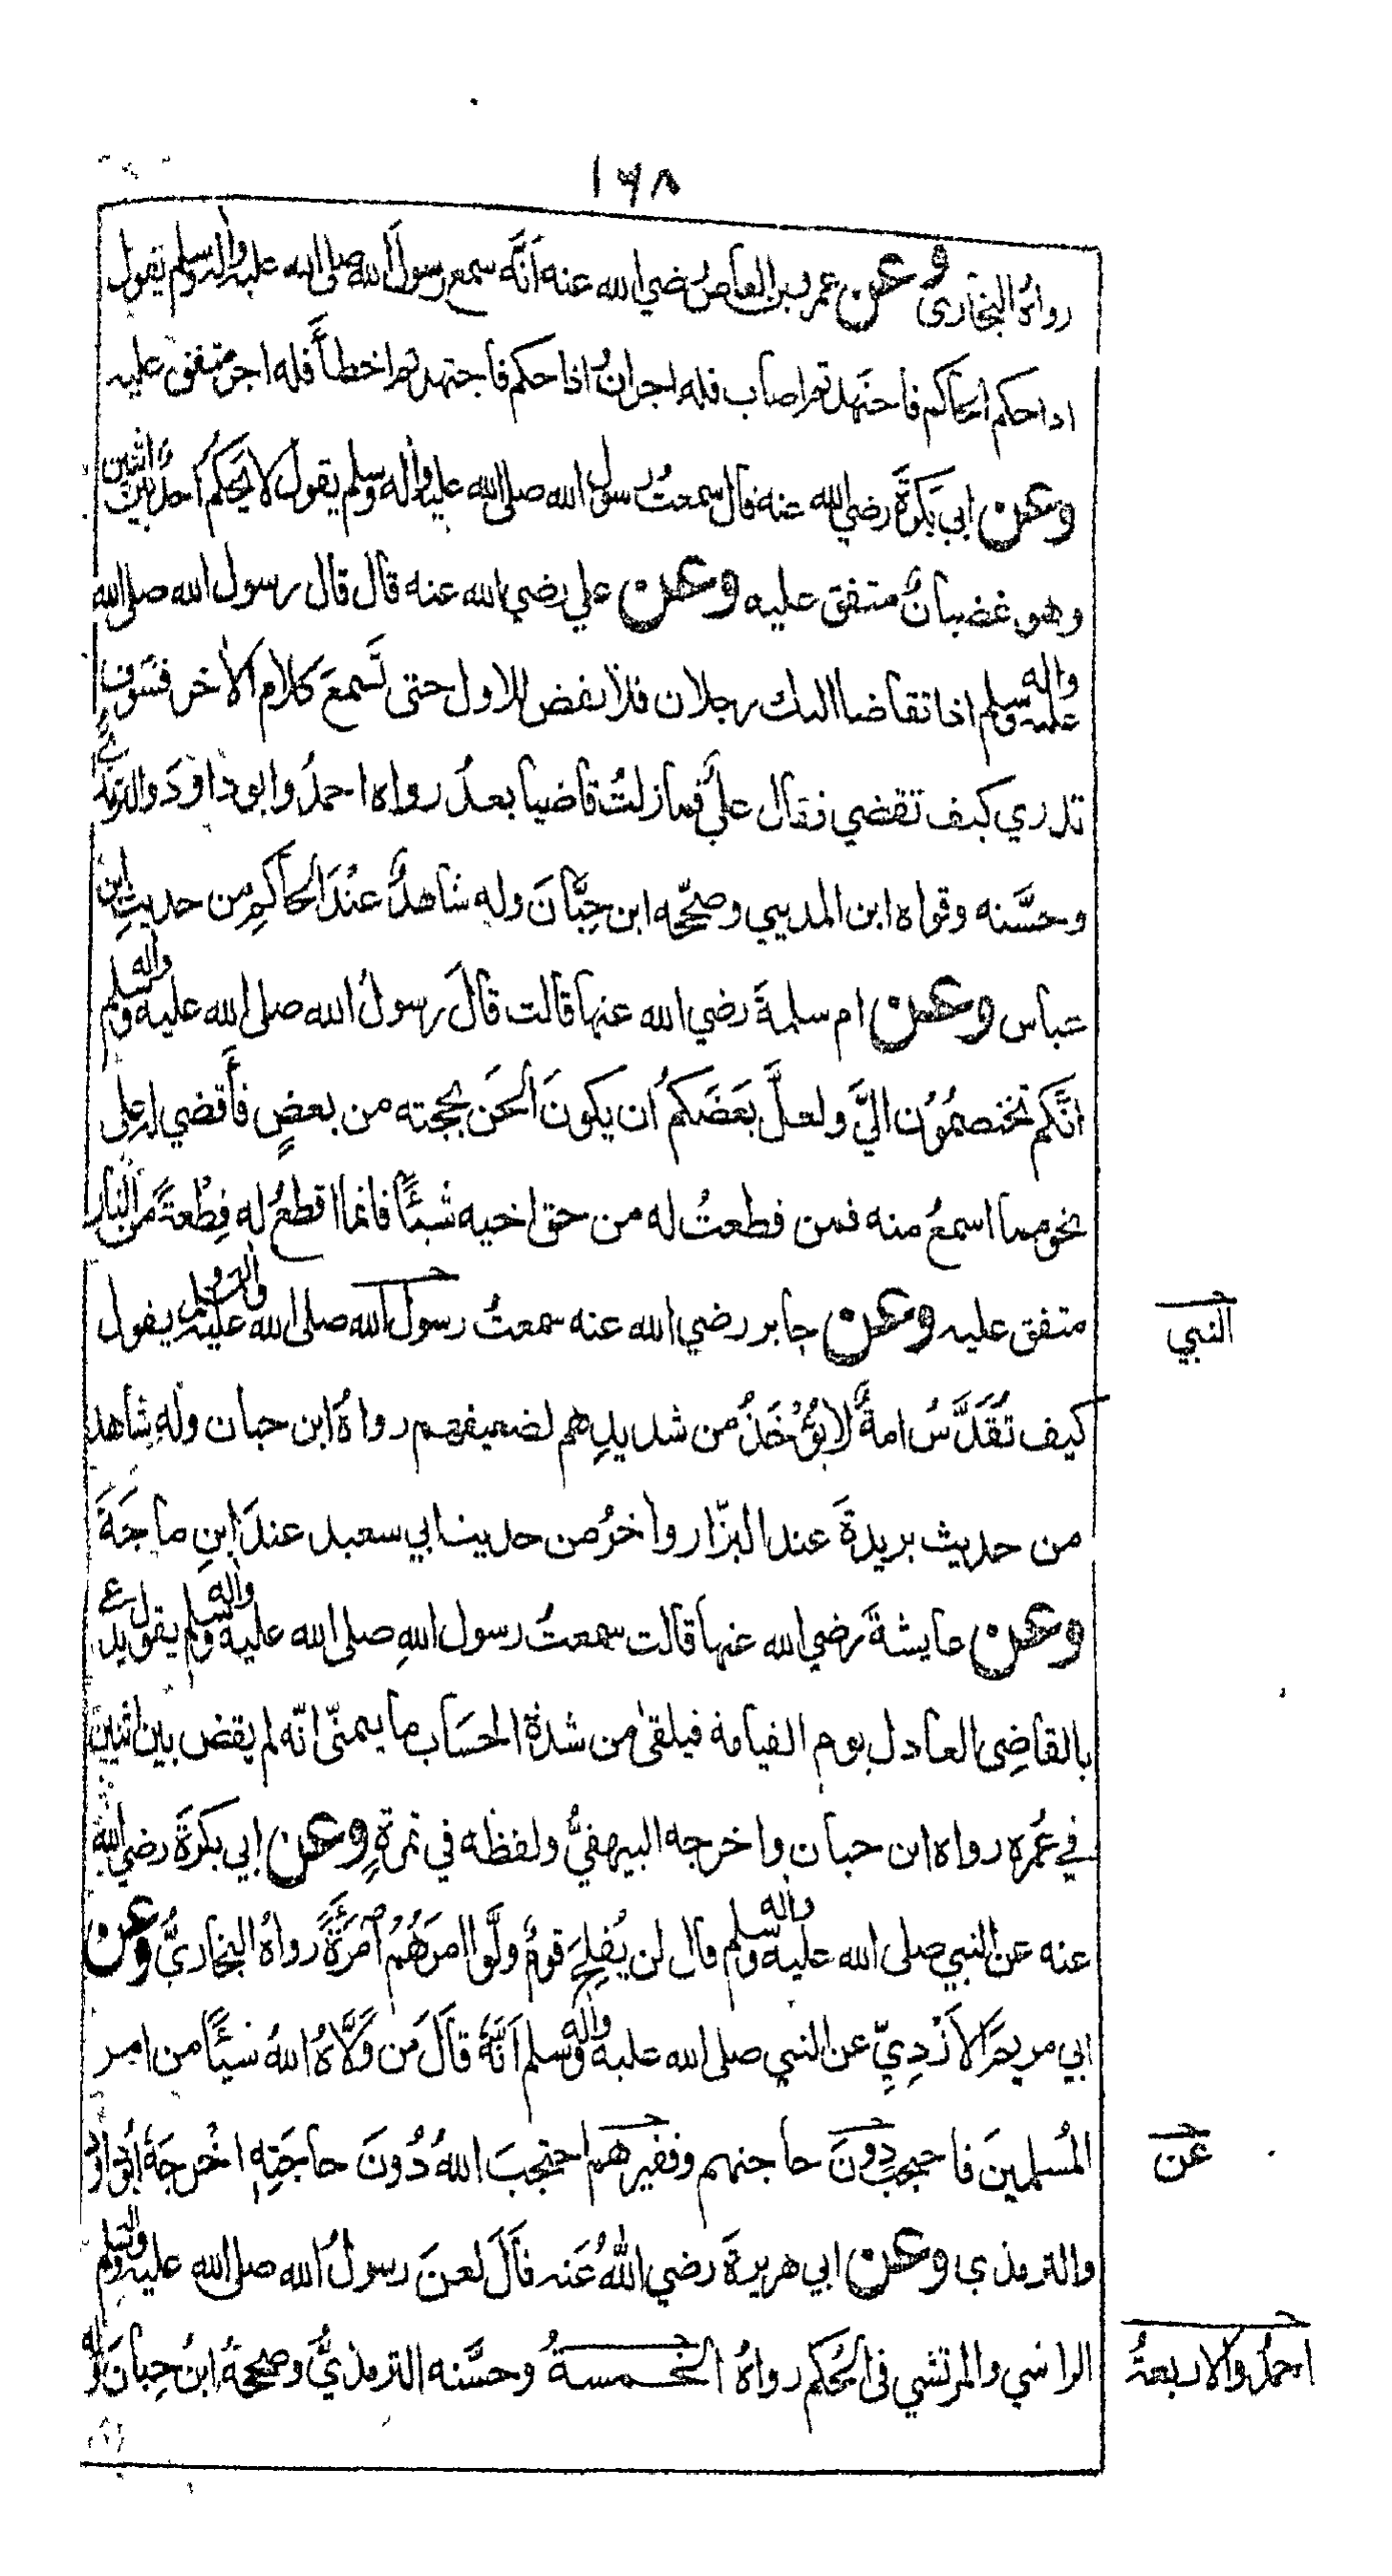 ١٦٨
رواه البخاري وعن عمرو بن العاص رضي الله عنه أنَّه سمع رسولَ الله صلى الله عليه وآله وسلم يقول
اذا حكم الحاكم فاجتهد ثم اصاب فله اجران واذا حكم فاجتهد ثم اخطأَ فله اجر متفق عليه
وعن ابي بَكرَةَ رضي الله عنه قال سمعتُ رسول الله صلى الله عليه وآله وسلم يقول لا يَحكم أحدٌ بين اثنين
وهو غضبانُ متفق عليه وعن علي رضي الله عنه قال قال رسول الله صلى الله
عليه وآله وسلم اذا تقاضا اليك رجلان فلا تقض للاول حتى تَسمعَ كلام الآخر فسَوف
تدري كيف تقضي فقال عليٌّ فما زلتُ قاضيا بعدُ رواه احمدُ وابو داودَ والترمذي
وحسَّنه وقواه ابن المديني وصحّحه ابن حِبَّانَ وله شاهدٌ عنْدَ الحاكمِ من حديثِ ابن
عباس وعن ام سلمةَ رضي الله عنها قالت قالَ رسولُ الله صلى الله عليه وآله وسلم
انَّكم تختصمُوْن اليَّ ولعلَّ بَعَضَكمُ أن يكونَ ألحَنَ بحجته من بعضٍ فأَقضي له على
نحو مما اسمعُ منه فمن قطعتُ له من حق اخيه شيئًا فانما اقطعُ له قِطْعةً من النار
متفق عليه وعن جابر رضي الله عنه سمعتُ رسولَ الله صلى الله عليه وآله وسلم يقول
النبي
كيف تُقَدَّسُ امةٌ لا يُؤْخَذُ من شديدِهم لضعيفهم رواهُ ابن حبان وله شاهد
من حديث بريدةَ عند البزّار واخرُ من حديث ابي سعيد عندَ ابنِ ماجَةَ
وعن عايشةَ رضي الله عنها قالت سمعتُ رسول اللهِ صلى الله عليه وآله وسلم يقول يدعى
بالقاضِي العادل يوم القيامة فيلقى من شدة الحسَاب ما يتمنّى انّه لم يقض بين اثنين
في عُمره رواه ابن حبان واخرجه البيهقيُّ ولفظه في تمرةٍ وعن ابي بكرةَ رضي الله
عنه عن النبي صلى الله عليه وآله وسلم قال لن يُفلِحَ قومٌ ولَّوا امرَهُمُ امرَأةً رواهُ البخاريُّ وعن
ابي مريمَ الأَزْدِيِّ عن النبي صلى الله عليه وآله وسلم اَنَّهُ قالَ مَن وَلَّاهُ اللهُ شيئًا من امر
المُسلمينَ فاحتجبَ دونَ حاجتهم وفقيرهم احتجبَ اللهُ دُونَ حاجتِهِ اخرجَهُ أبو داود
عن
والترمذي وعن ابي هريرة رضي اللهُ عَنه قالَ لعنَ رسولُ الله صلى الله عليه وآله وسلم
الراشي والمرتشي في الحُكم رواهُ الخمسةُ وحسَّنه الترمذيُّ وصححهُ ابنُ حِبانَ وله
احمدُ والاربعةُ